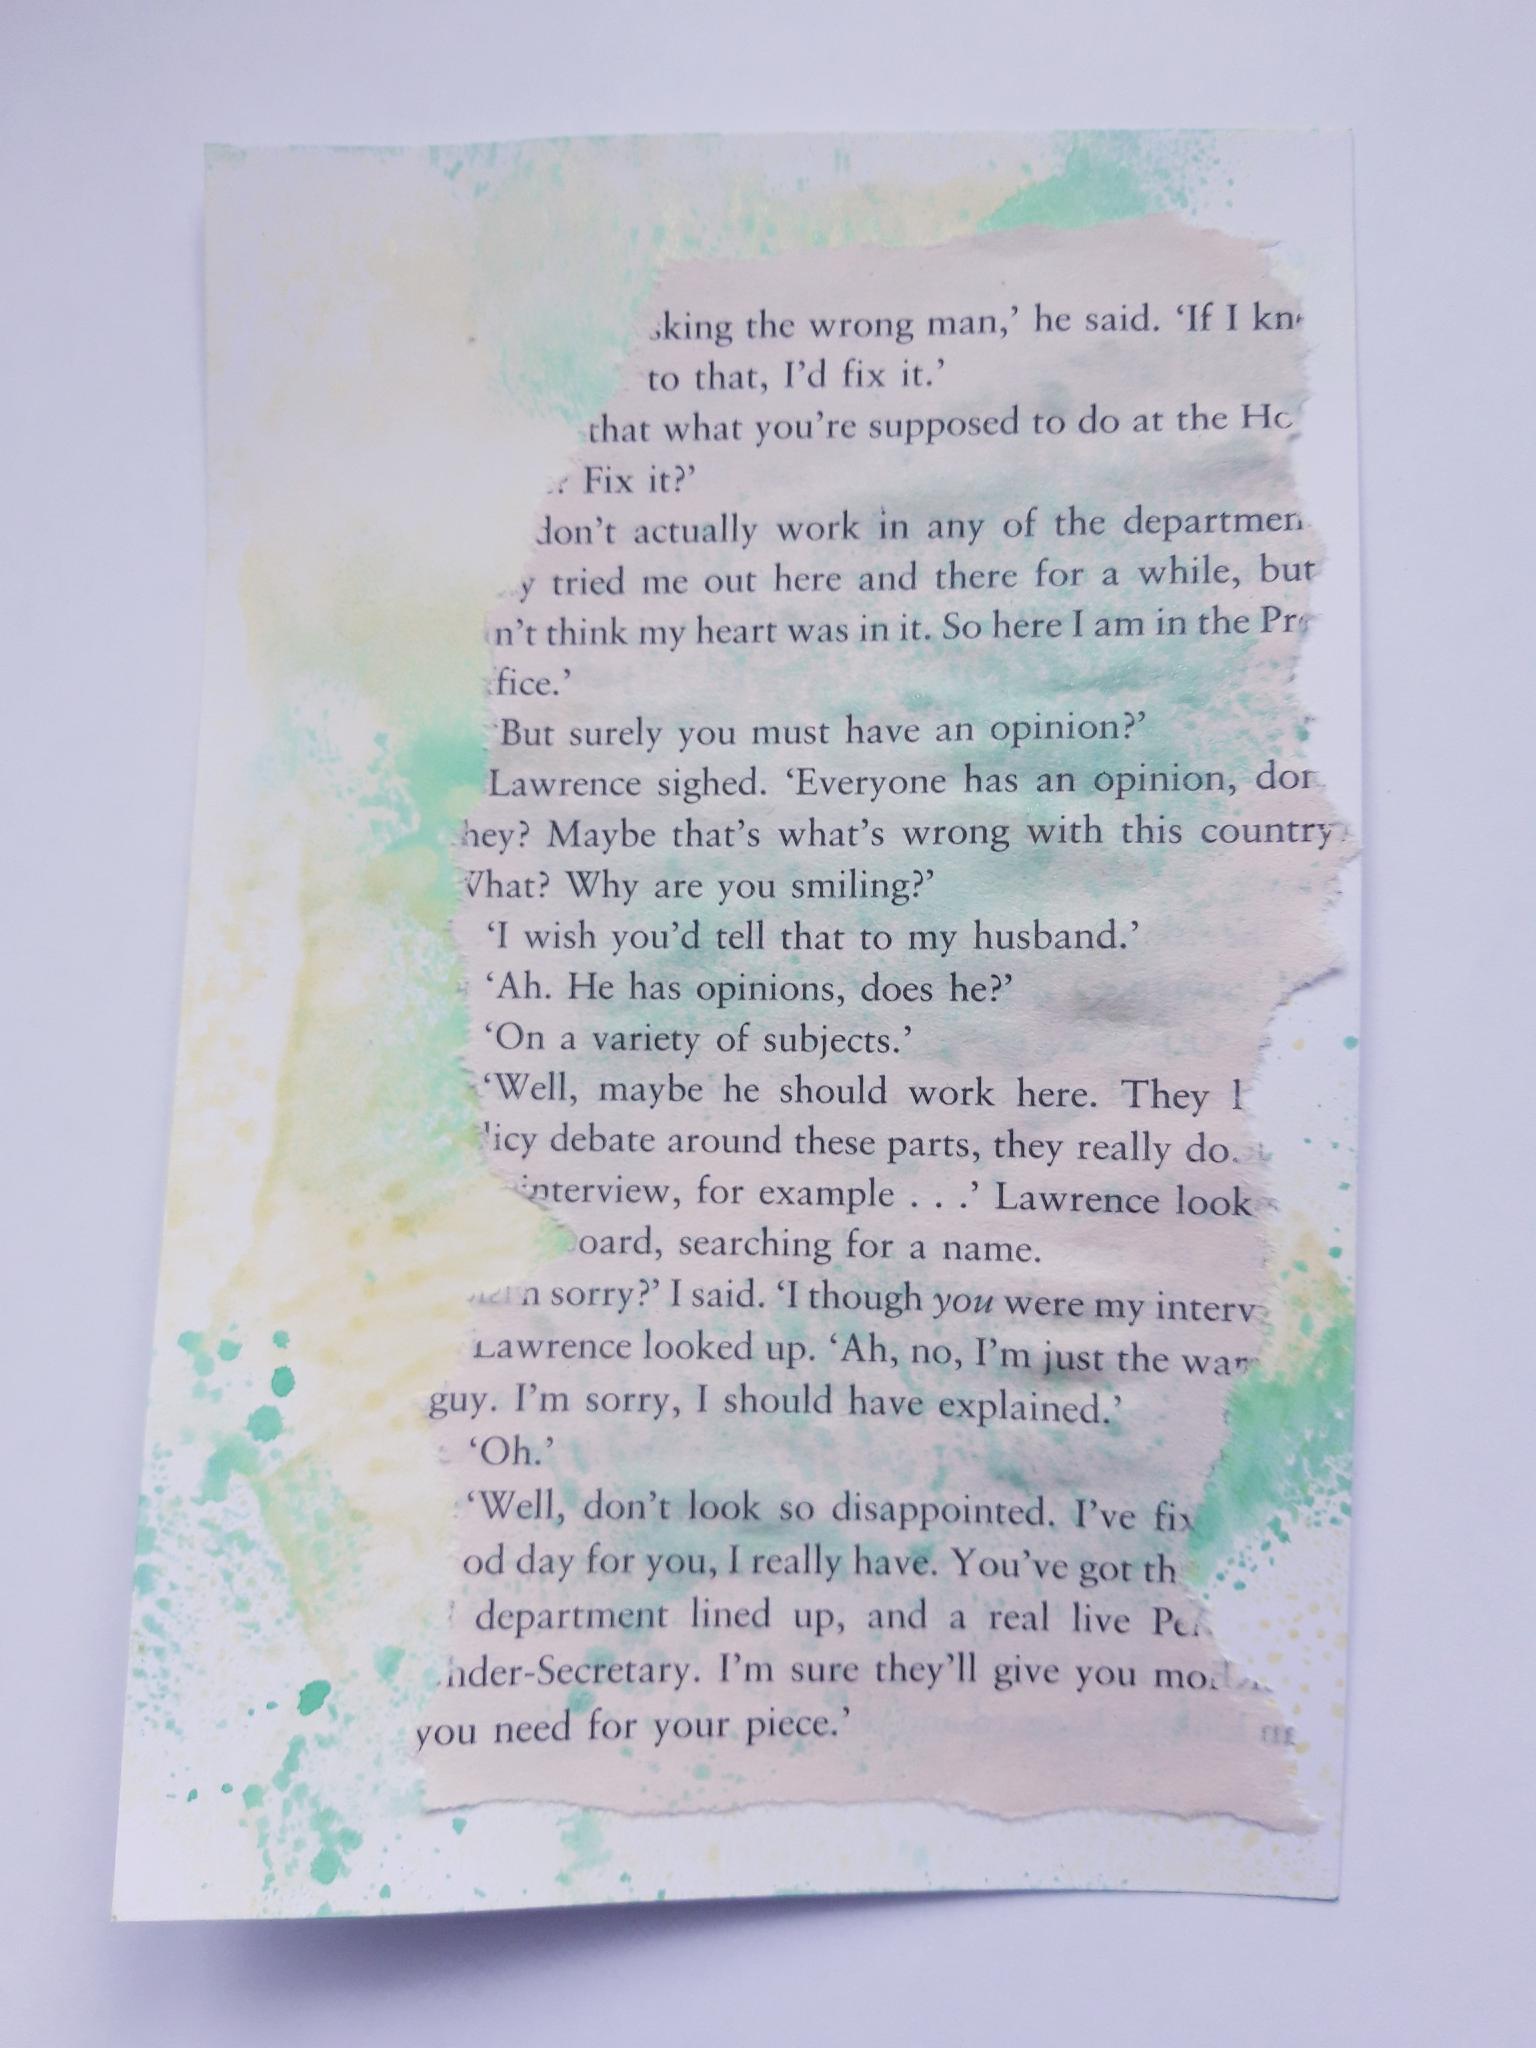 king the wrong man,’ he said. ‘If I
to that, I’d fix it.’
that what you’re supposed to do at the
Fix it?’
don’t actually work in any of the
tried me out here and there for a while, but
n’t think my heart was in it. So here I am in the
fice.’
‘But surely you must have an opinion?’
Lawrence sighed. ‘Everyone has an opinion,
hey? Maybe that’s what’s wrong with this country
What? Why are you smiling?’
‘I wish you’d tell that to my husband.’
‘Ah. He has opinions, does he?’
‘On a variety of subjects.’
‘Well, maybe he should work here. They
licy debate around these parts, they really do.
interview, for example . . .’ Lawrence look
oard, searching for a name.
sorry?’ I said. ‘I though you were my interv
Lawrence looked up. ‘Ah, no, I’m just the
guy. I’m sorry, I should have explained.’
‘Oh.’
‘Well, don’t look so disappointed. I’ve fix
od day for you, I really have. You’ve got th
department lined up, and a real live
nder-Secretary. I’m sure they’ll give you
you need for your piece.’